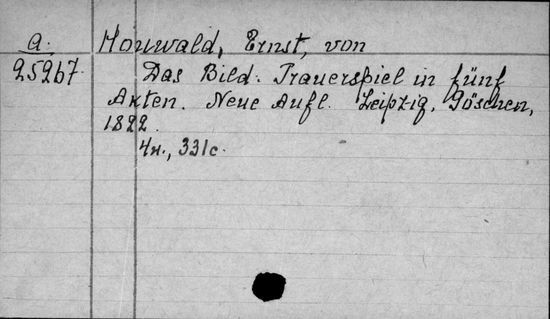 a. Houwald, Ernst, von
25267. Das Bild. Trauerspiel in fünf
Akten. Neue Aufl. Leipzig, Göschen,
1822.
4н., 331с.